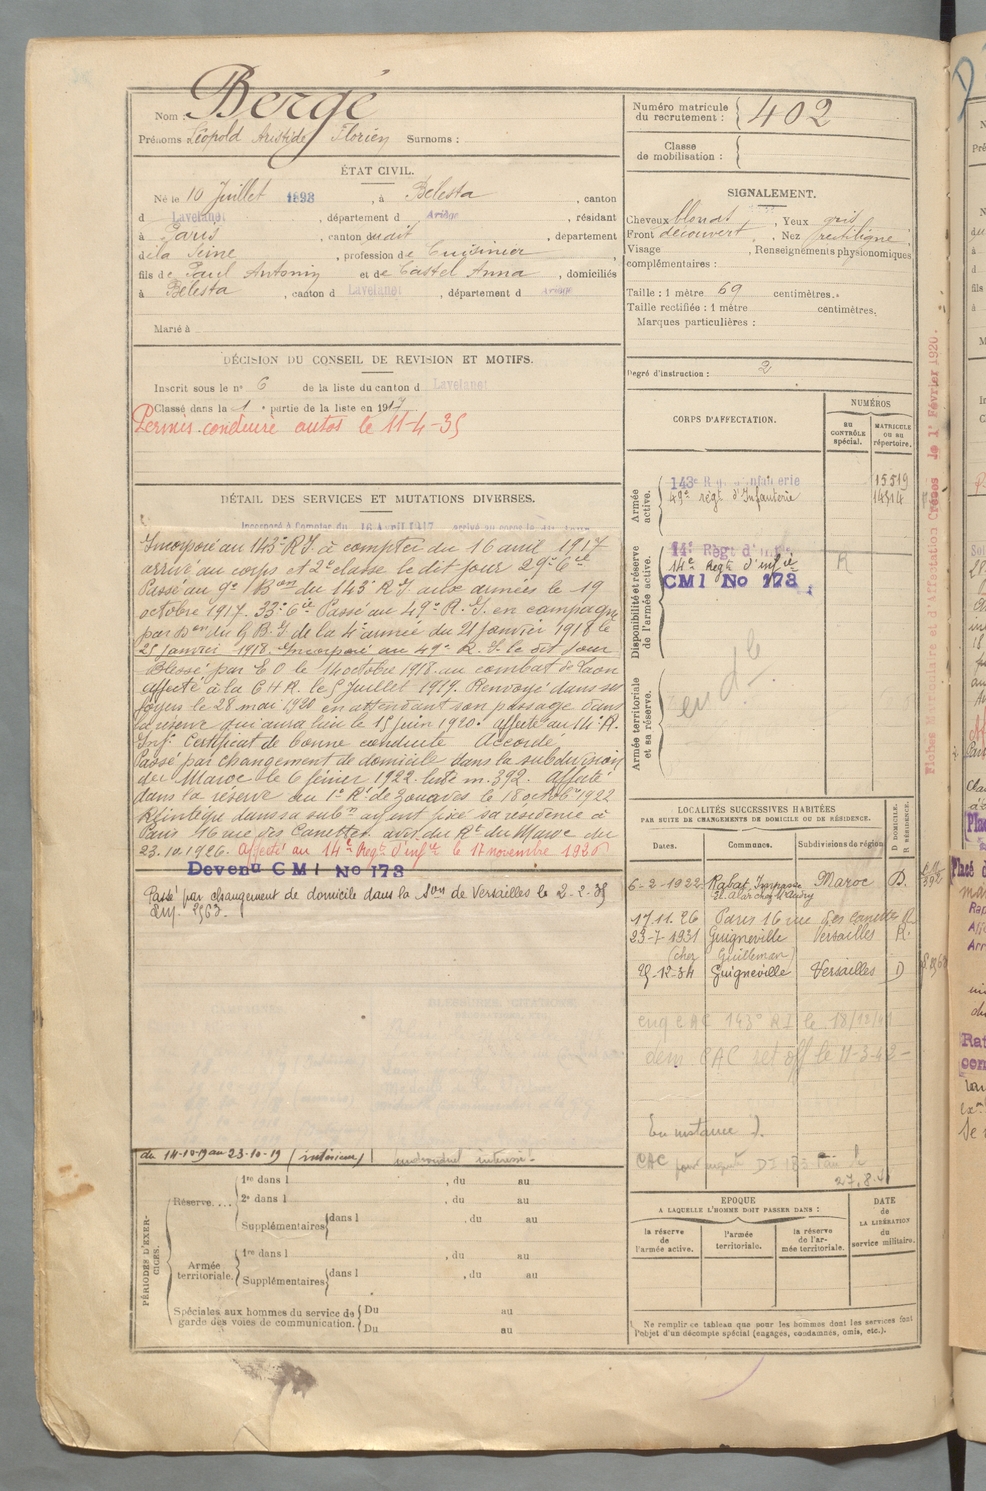 Nom : Bergé
Prénoms Léopold Aristide Florien Surnoms :
ÉTAT CIVIL.
Né le 10 Juillet 1898, à Belesta, canton
d Lavelanet, département d Ariège, résidant
à Paris, canton dudit, departement
de la Seine, profession de Cuisinier
fils de Paul Antonin et de Castel Anna, domiciliés
à Belesta, canton d Lavelanet, département d Ariège
Marié à
DÉCISION DU CONSEIL DE REVISION ET MOTIFS.
Inscrit sous le n° 6 de la liste du canton d Lavelanet
Classé dans la 1e partie de la liste en 1917
Permis conduire autos le 11-4-35
DÉTAIL DES SERVICES ET MUTATIONS DIVERSES.
Incorporé à compter du 16 Avril 1917
Incorporé au 143e R.I. à compter du 16 avril 1917
arrivé au corps et 2e classe le dit jour 29e Cie
Passé au 9e Bon du 143e R.I. aux armées le 19
octobre 1917. 33e Cie Passé au 49e R.I. en campagne
par Don du G.B.I de la 4e armée du 21 janvier 1918 le
25 janvier 1918. Incorporé au 49e R.I. le dit jour
Blessé par E.O. le 14 octobre 1918 au combat de Laon
affecté à la C.H.R. le 5 Juillet 1919. Renvoyé dans ses
foyers le 28 mai 1920 en attendant son passage dans
la réserve qui aura lieu le 15 juin 1920. affecté au 14e R.
Inf. Certificat de bonne conduite Accordé.
Passé par changement de domicile dans la subdivision
du Maroc le 6 février 1922. liste m. 392. affecté
dans la réserve au 1er Rt de Zouaves le 18 octobre 1922
Réintégré dans sa subon ayant fixé sa résidence à
Paris 16 rue des Canettes. avis du Rt du Maroc du
23.10.1926. Affecté au 14e Regt d'infie le 17 novembre 1926
Devenu CMI No 173
Passé par changement de domicile dans la Son de Versailles le 2-2-35
2563.
du 14-10-19 au 23-10-19 (intérieur)
PÉRIODES D'EXERCICES.
Réserve....
1re dans l , du au
2e dans l , du au
Supplémentaires dans l , du au
Armée territoriale.
1re dans l , du au
Supplémentaires dans l , du au
Spéciales aux hommes du service de garde des voies de communication.
Du au
Du au
Numéro matricule du recrutement : 402
Classe de mobilisation :
SIGNALEMENT.
Cheveux blonds, Yeux gris
Front découvert, Nez rectiligne
Visage , Renseignements physionomiques
complémentaires :
Taille : 1 mètre 69 centimètres.
Taille rectifiée : 1 mètre centimètres.
Marques particulières :
Degré d'instruction : 2
CORPS D'AFFECTATION.
NUMÉROS
AU CONTRÔLE spécial.
MATRICULE OU AU répertoire.
Armée active.
143e Rgt Infanterie 15519
49e régt d'Infanterie 14514
Disponibilité et réserve de l'armée active.
14e Régt d'inf
14e Regt d'infie R
CMI No 173
Armée territoriale et sa réserve.
LOCALITÉS SUCCESSIVES HABITÉES
PAR SUITE DE CHANGEMENTS DE DOMICILE OU DE RÉSIDENCE.
Dates. Communes. Subdivisions de région D DOMICILE. R RÉSIDENCE.
6-2-1922 Rabat Impasse Maroc D.
17.11.26 Paris 16 rue des Canettes R.
23-7-1931 Guigneville Versailles R.
(chez Guilleman)
25-12-34 Guigneville Versailles D
CAC 143e RI le 18/12/41
CAC 11-3-42
En instance
CAC
27.8.41
EPOQUE
A LAQUELLE L'HOMME DOIT PASSER DANS :
DATE de LA LIBÉRATION du service militaire.
la réserve de l'armée active.
l'armée territoriale.
la réserve de l'armée territoriale.
Ne remplir ce tableau que pour les hommes dont les services font
l'objet d'un décompte spécial (engagés, condamnés, omis, etc.).
Fiches Matriculaire et d'Affectation Créées le 1er Février 1920.